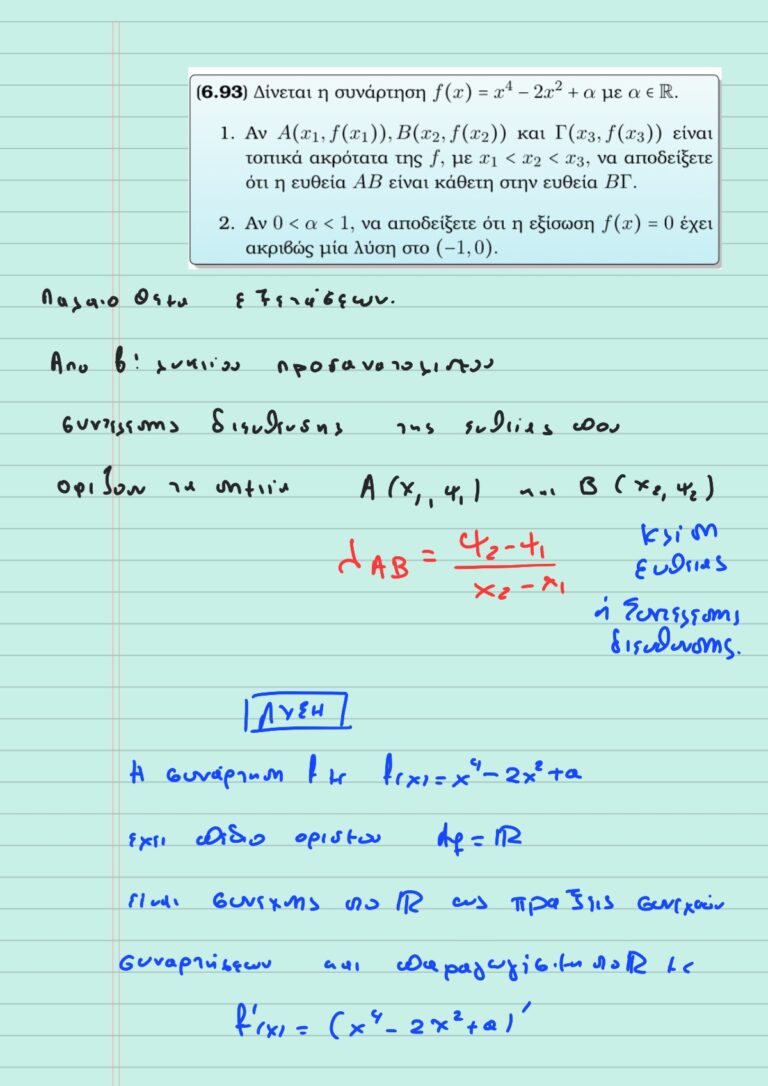 (6.93) Δίνεται η συνάρτηση f(x) = x⁴ − 2x² + α με α ∈ ℝ.
1. Αν A(x₁, f(x₁)), B(x₂, f(x₂)) και Γ(x₃, f(x₃)) είναι
τοπικά ακρότατα της f, με x₁ < x₂ < x₃, να αποδείξετε
ότι η ευθεία AB είναι κάθετη στην ευθεία BΓ.
2. Αν 0 < α < 1, να αποδείξετε ότι η εξίσωση f(x) = 0 έχει
ακριβώς μία λύση στο (−1, 0).
Παλαιο θεμα εξετάσεων.
Απο β' λυκείου προσανατολισμου
συντελεστης διευθυνσης της ευθειας που
οριζουν τα σημεία A(x₁, ψ₁) και B(x₂, ψ₂)
λ_AB = (ψ₂ − ψ₁)/(x₂ − x₁)
κλίση
ευθειας
ή συντελεστης
διευθυνσης.
ΛΥΣΗ
Η συνάρτηση f με f(x) = x⁴ − 2x² + α
εχει πεδιο ορισμου Af = ℝ
ειναι συνεχης στο ℝ ως πραξεις συνεχών
συναρτήσεων και παραγωγίσιμη στο ℝ με
f'(x) = (x⁴ − 2x² + α)'